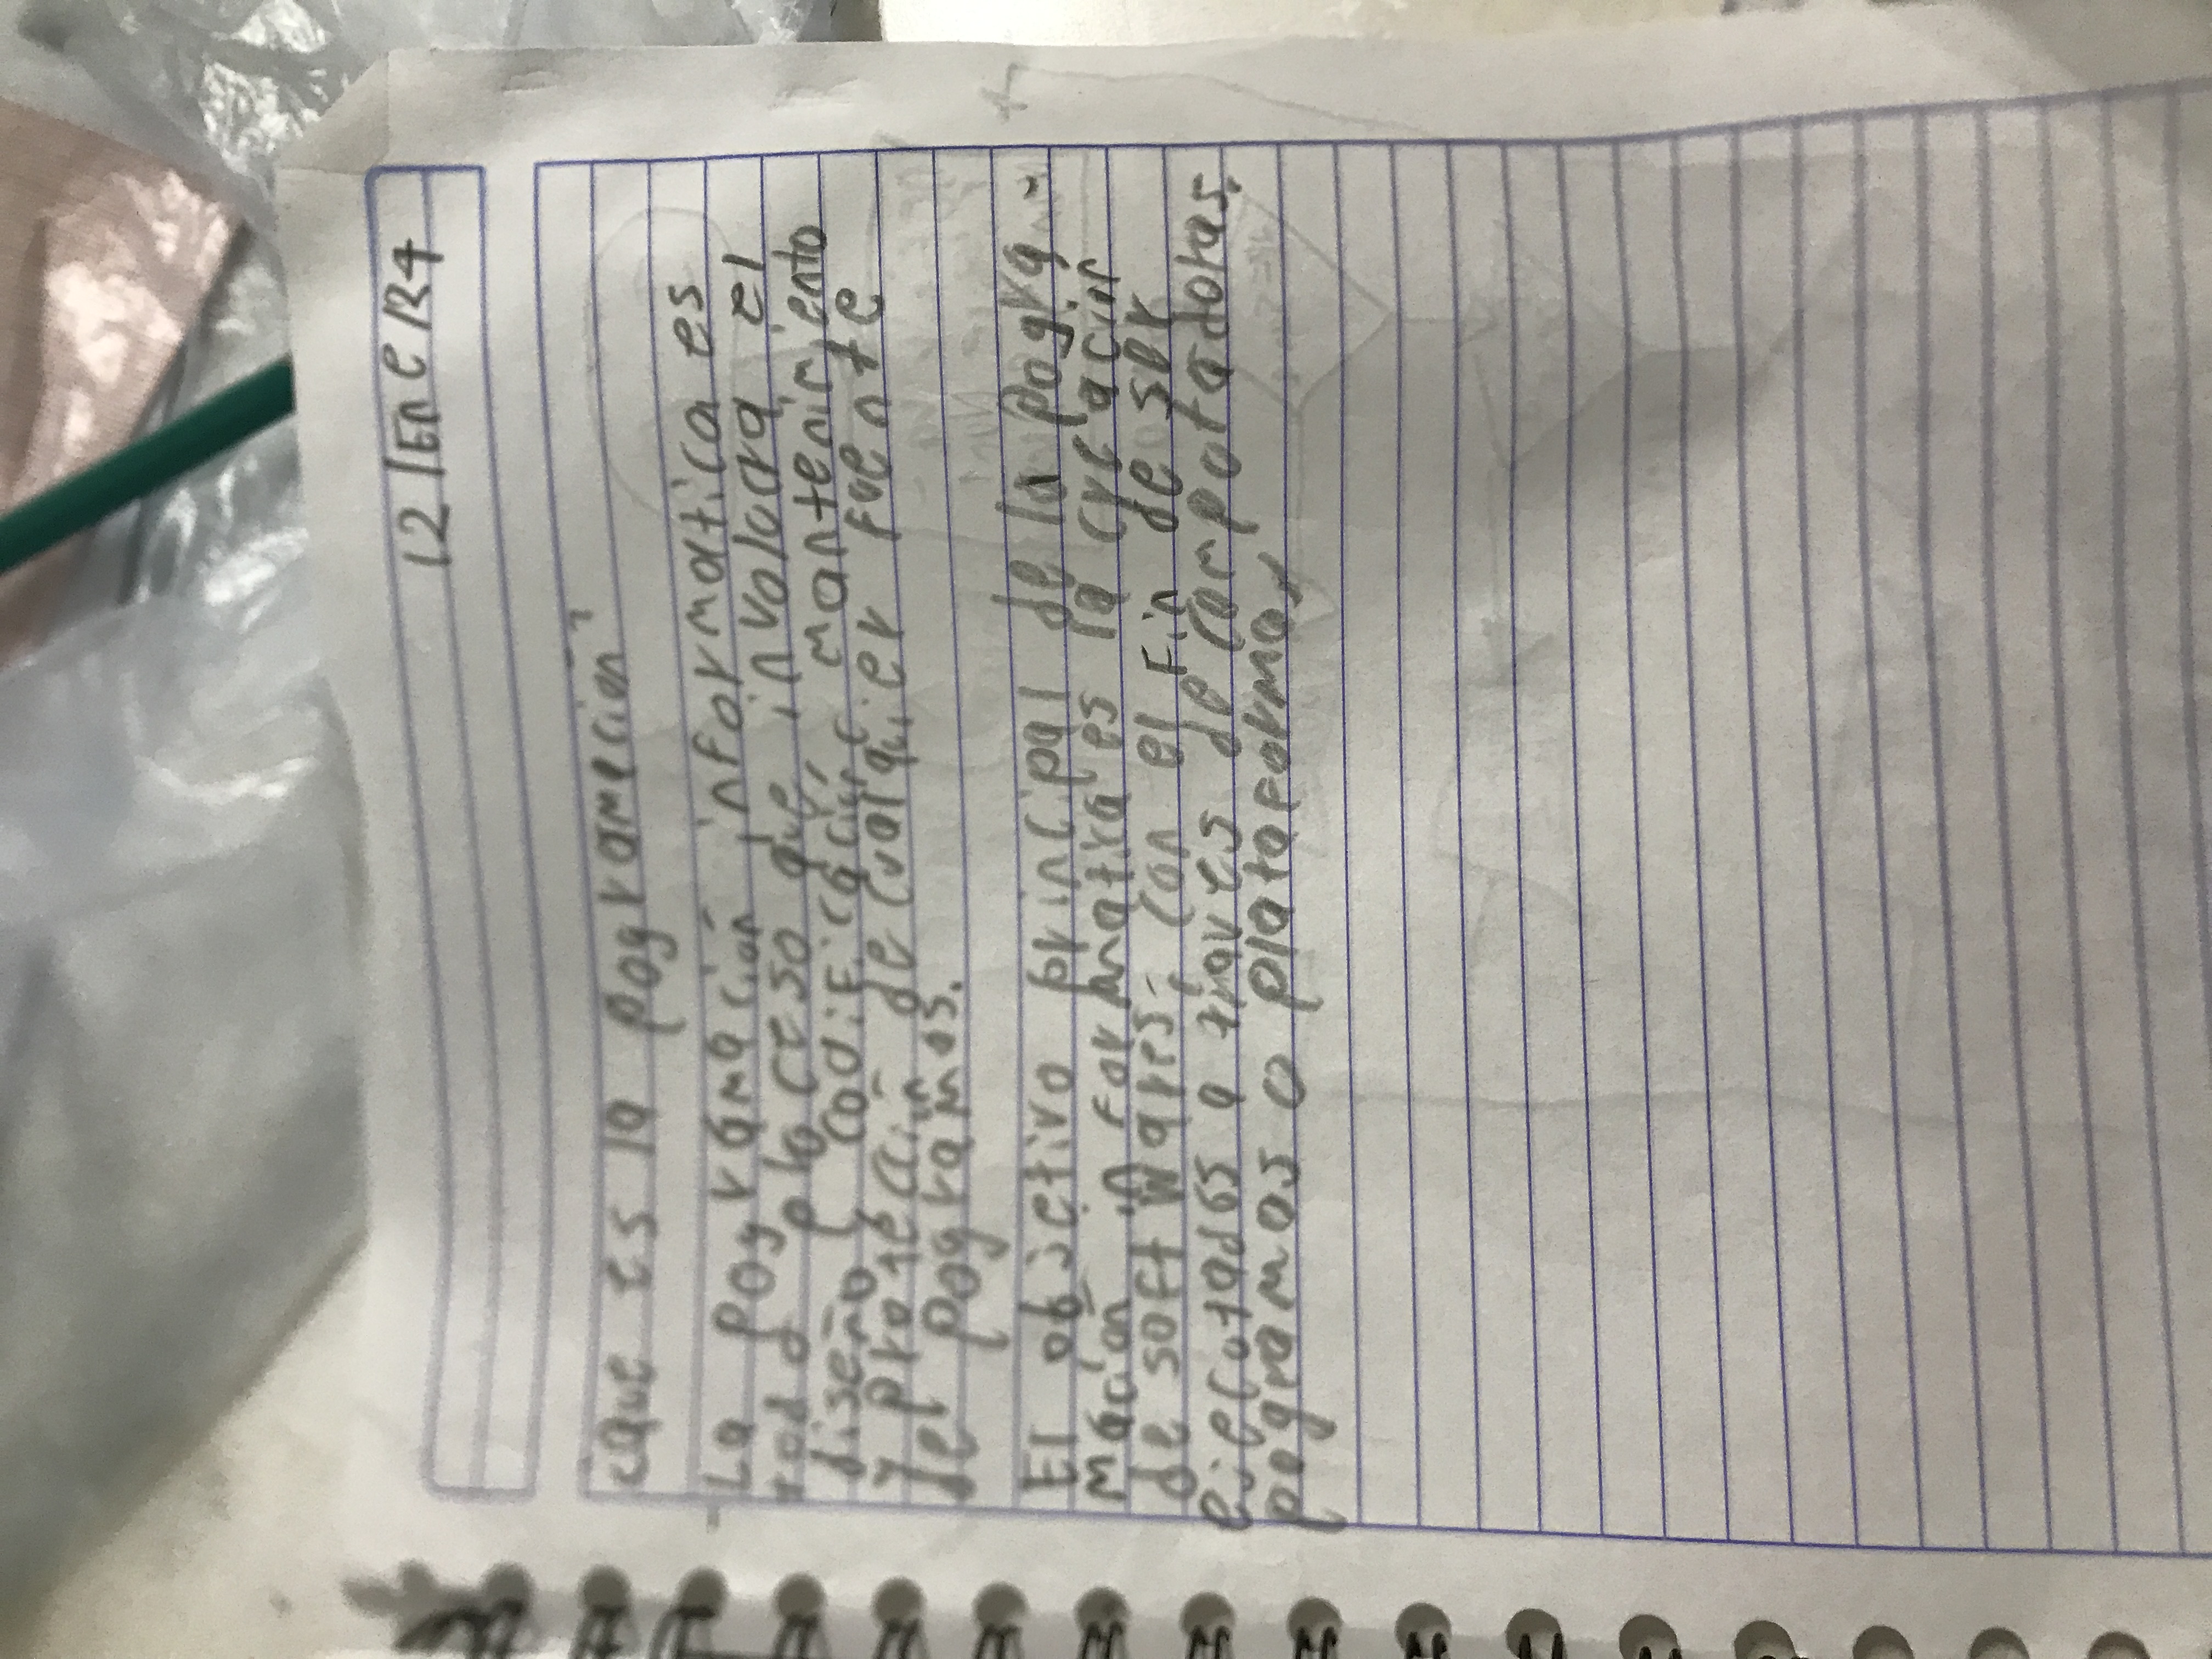 12/Ene/24
¿que es la pogramación?
La pogramación informatica es
todo proceso que, involucra el
diseño, codificación, mantenimiento
y protección de cualquier fuente
del pogramas.
El objetivo principal de la pogra-
mación informatica es la creación
de softwares, con el fin de ser
ejecutados a traves de computadoras.
pogramas o plataforma,